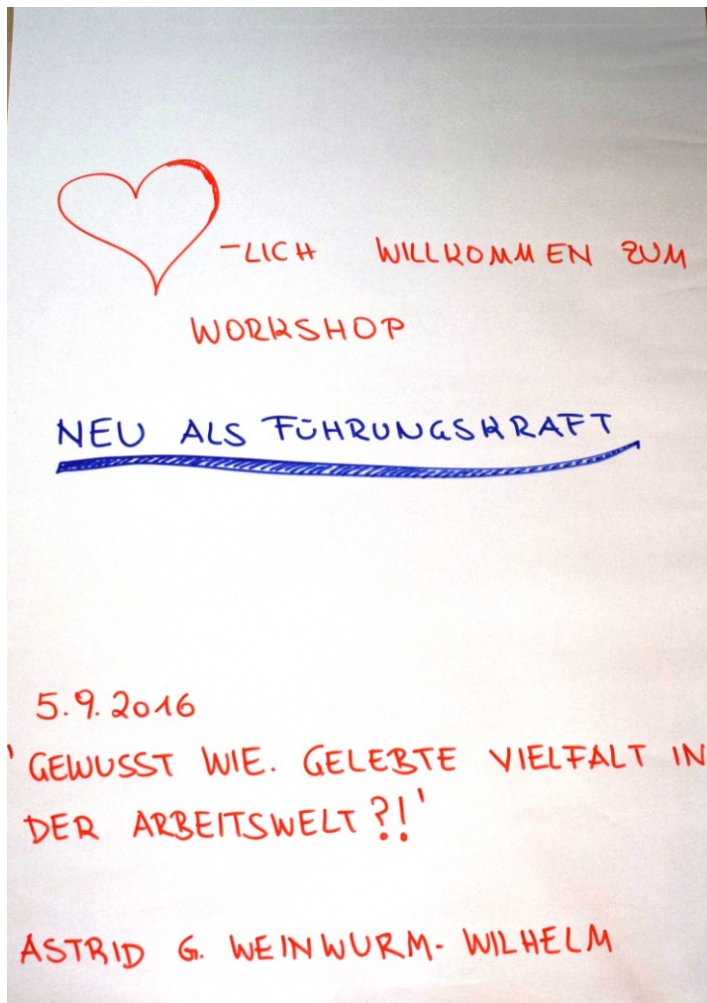 -LICH WILLKOMMEN ZUM
WORKSHOP
NEU ALS FÜHRUNGSKRAFT
5.9.2016
'GEWUSST WIE. GELEBTE VIELFALT IN
DER ARBEITSWELT?!'
ASTRID G. WEINWURM-WILHELM